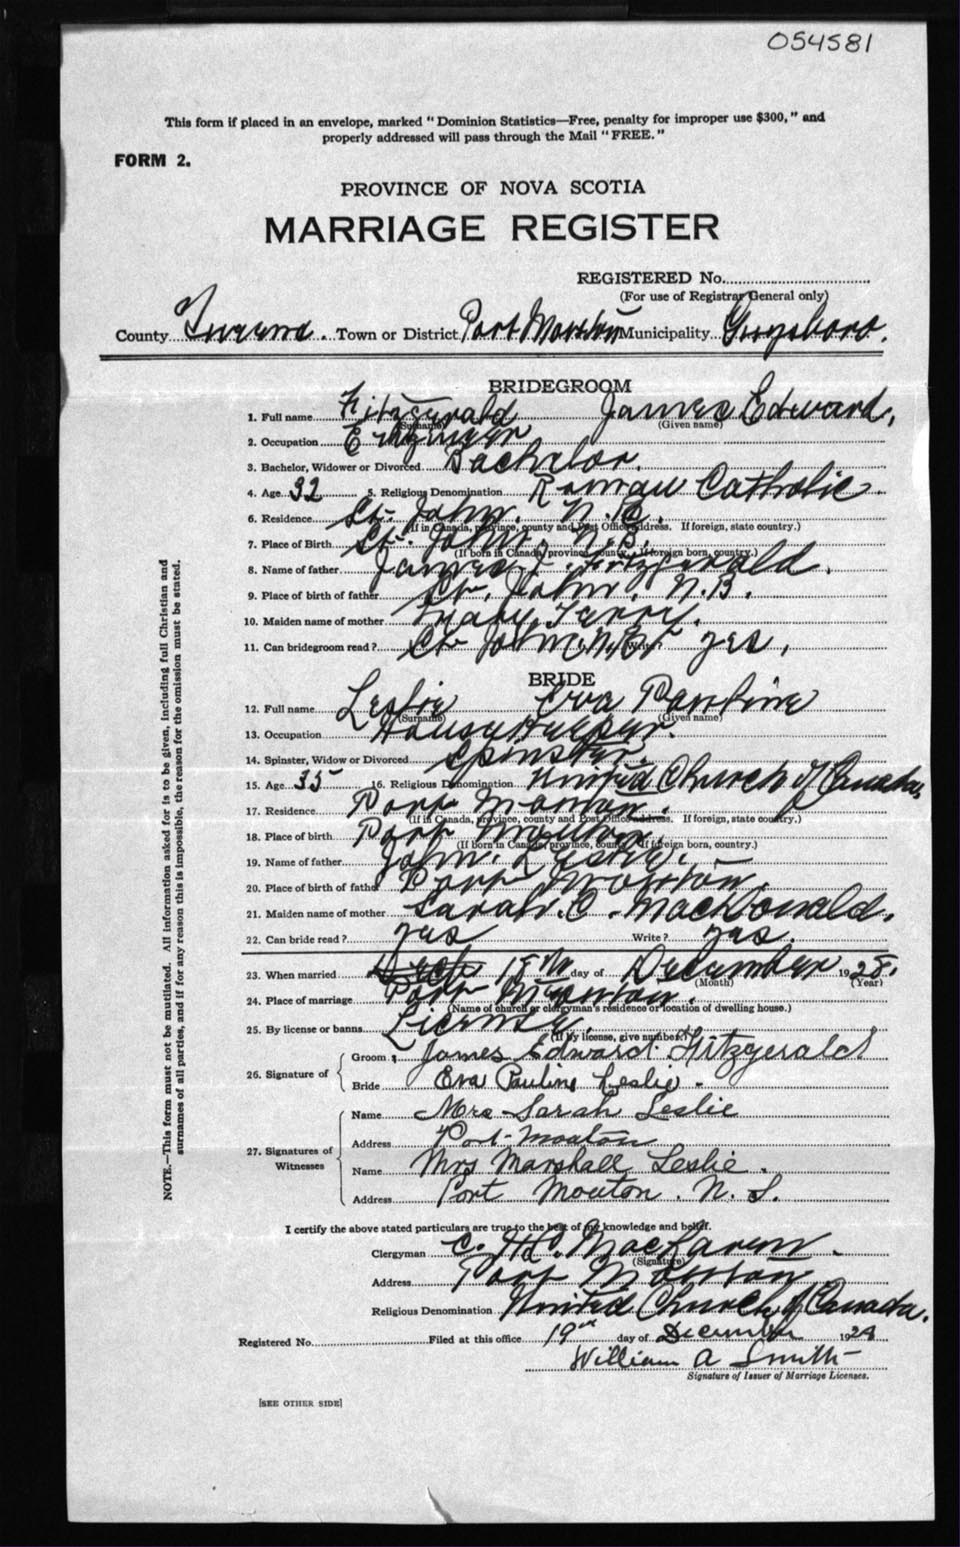 054581
This form if placed in an envelope, marked "Dominion Statistics—Free, penalty for improper use $300," and
properly addressed will pass through the Mail "FREE."
FORM 2.
PROVINCE OF NOVA SCOTIA
MARRIAGE REGISTER
REGISTERED No.
(For use of Registrar General only)
County Queens. Town or District Port Mouton Municipality Guysboro.
BRIDEGROOM
1. Full name Fitzgerald James Edward,
(Surname) (Given name)
2. Occupation Engineer
3. Bachelor, Widower or Divorced Bachelor.
4. Age 32 5. Religious Denomination Roman Catholic.
6. Residence St. John. N.B.
(If in Canada, province, county and Post Office address. If foreign, state country.)
7. Place of Birth St. John, N.B.
(If born in Canada, province, county. If foreign born, country.)
8. Name of father James Fitzgerald.
9. Place of birth of father St. John, N.B.
10. Maiden name of mother Mary Terry.
11. Can bridegroom read? St John, N.B. Write? yes,
BRIDE
12. Full name Leslie Eva Pauline
(Surname) (Given name)
13. Occupation House Keeper.
14. Spinster, Widow or Divorced Spinster.
15. Age 35 16. Religious Denomination United Church of Canada,
17. Residence Port Mouton.
(If in Canada, province, county and Post Office address. If foreign, state country.)
18. Place of birth Port Mouton.
(If born in Canada, province, county. If foreign born, country.)
19. Name of father John. Leslie.
20. Place of birth of father Port Mouton.
21. Maiden name of mother Sarah. C. MacDonald.
22. Can bride read? yes Write? yes.
23. When married 18th day of December 1928.
(Month) (Year)
24. Place of marriage Port Mouton.
(Name of church or clergyman's residence or location of dwelling house.)
25. By license or banns License.
(If by license, give number.)
26. Signature of
Groom James Edward Fitzgerald
Bride Eva Pauline Leslie.
27. Signatures of Witnesses
Name Mrs Sarah Leslie
Address Port-Mouton
Name Mrs Marshall Leslie.
Address Port Mouton. N.S.
I certify the above stated particulars are true to the best of my knowledge and belief.
Clergyman C. H.C. MacLaren.
(Signature)
Address Port Mouton
Religious Denomination United Church of Canada.
Registered No. Filed at this office 19th day of December 1928
William A Smith
Signature of Issuer of Marriage Licenses.
[SEE OTHER SIDE]
NOTE.—This form must not be mutilated. All information asked for is to be given, including full Christian and
surnames of all parties, and if for any reason this is impossible, the reason for the omission must be stated.